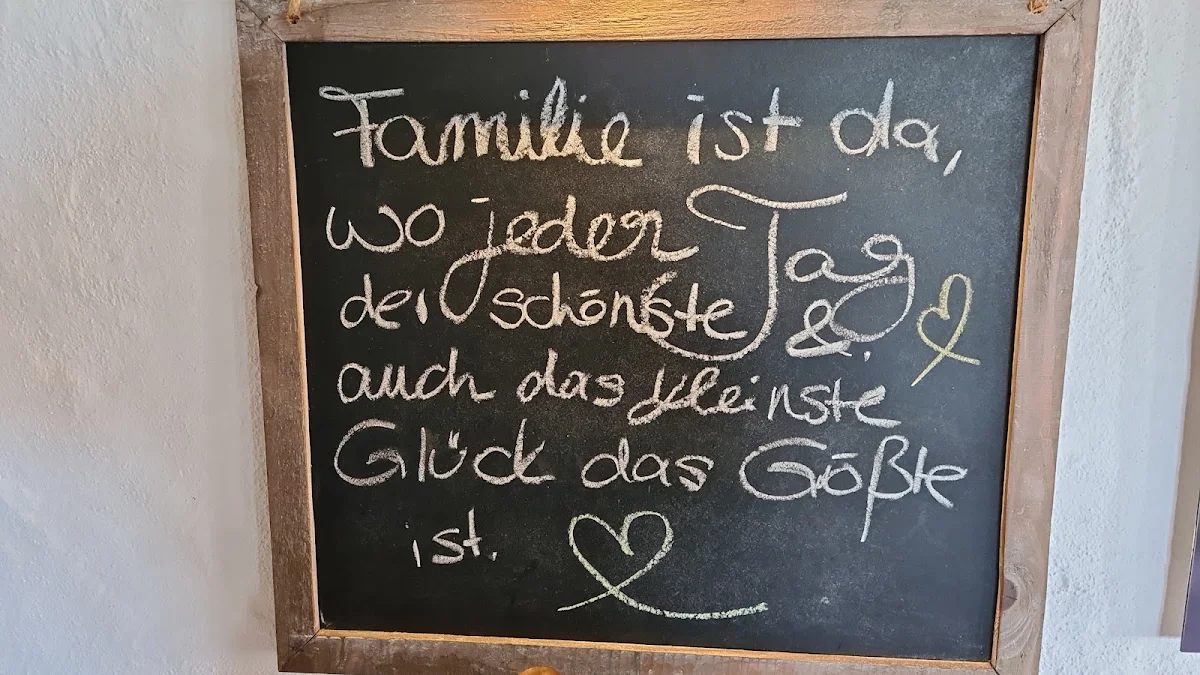 Familie ist da,
wo jeder Tag
der schönste &
auch das kleinste
Glück das Größte
ist.